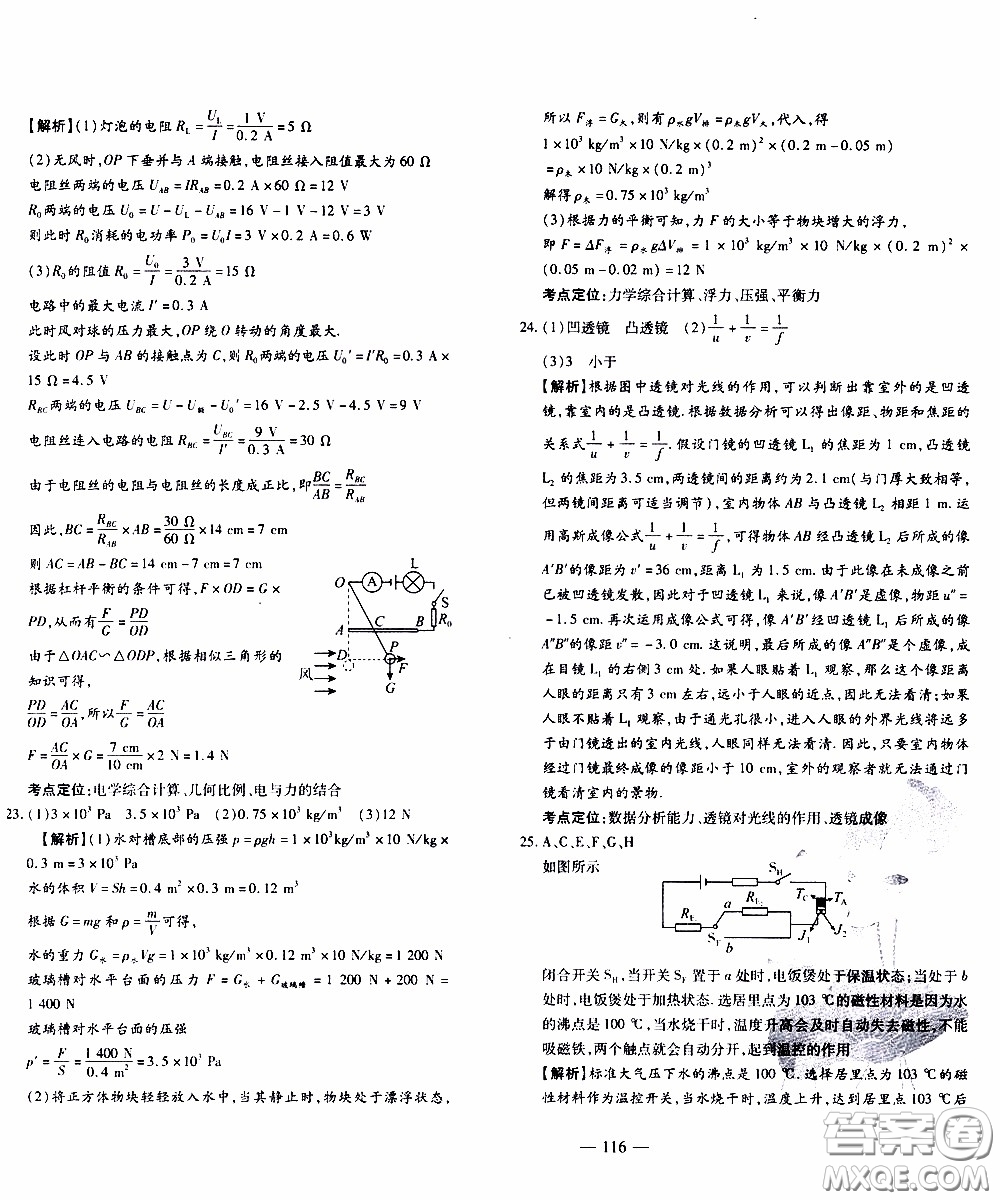 【解析】(1)灯泡的电阻 R_L = U_L/I = 1 V/0.2 A = 5 Ω
(2)无风时,OP 下垂并与 A 端接触,电阻丝接入阻值最大为 60 Ω
电阻丝两端的电压 U_AB = IR_AB = 0.2 A × 60 Ω = 12 V
R₀两端的电压 U₀ = U − U_L − U_AB = 16 V − 1 V − 12 V = 3 V
则此时 R₀消耗的电功率 P₀ = U₀I = 3 V × 0.2 A = 0.6 W
(3)R₀的阻值 R₀ = U₀/I = 3 V/0.2 A = 15 Ω
电路中的最大电流 I′ = 0.3 A
此时风对球的压力最大,OP 绕 O 转动的角度最大.
设此时 OP 与 AB 的接触点为 C,则 R₀两端的电压 U₀′ = I′R₀ = 0.3 A ×
15 Ω = 4.5 V
R_BC两端的电压 U_BC = U − U_额 − U₀′ = 16 V − 2.5 V − 4.5 V = 9 V
电阻丝连入电路的电阻 R_BC = U_BC/I′ = 9 V/0.3 A = 30 Ω
由于电阻丝的电阻与电阻丝的长度成正比,即 BC/AB = R_BC/R_AB
因此,BC = R_BC/R_AB × AB = 30 Ω/60 Ω × 14 cm = 7 cm
则 AC = AB − BC = 14 cm − 7 cm = 7 cm
根据杠杆平衡的条件可得,F × OD = G ×
PD,从而有 F/G = PD/OD
由于△OAC∽△ODP,根据相似三角形的
知识可得,
PD/OD = AC/OA,所以 F/G = AC/OA
F = AC/OA × G = 7 cm/10 cm × 2 N = 1.4 N
O A L
S
R₀
A C B
D P
F
风
G
考点定位:电学综合计算、几何比例、电与力的结合
23. (1)3 × 10³ Pa 3.5 × 10³ Pa (2)0.75 × 10³ kg/m³ (3)12 N
【解析】(1)水对槽底部的压强 p = ρgh = 1 × 10³ kg/m³ × 10 N/kg ×
0.3 m = 3 × 10³ Pa
水的体积 V = Sh = 0.4 m² × 0.3 m = 0.12 m³
根据 G = mg 和 ρ = m/V 可得,
水的重力 G_水 = ρ_水Vg = 1 × 10³ kg/m³ × 0.12 m³ × 10 N/kg = 1 200 N
玻璃槽对水平台面的压力 F = G_水 + G_玻璃槽 = 1 200 N + 200 N =
1 400 N
玻璃槽对水平台面的压强
p′ = F/S = 1 400 N/0.4 m² = 3.5 × 10³ Pa
(2)将正方体物块轻轻放入水中,当其静止时,物块处于漂浮状态,
所以 F_浮 = G_木,则有 ρ_水gV_排 = ρ_木gV_木,代入,得
1 × 10³ kg/m³ × 10 N/kg × (0.2 m)² × (0.2 m − 0.05 m)
= ρ_木 × 10 N/kg × (0.2 m)³
解得 ρ_木 = 0.75 × 10³ kg/m³
(3)根据力的平衡可知,力 F 的大小等于物块增大的浮力,
即 F = ΔF_浮 = ρ_水gΔV_排 = 1 × 10³ kg/m³ × 10 N/kg × (0.2 m)² ×
(0.05 m − 0.02 m) = 12 N
考点定位:力学综合计算、浮力、压强、平衡力
24. (1)凹透镜 凸透镜 (2)1/u + 1/v = 1/f
(3)3 小于
【解析】根据图中透镜对光线的作用,可以判断出靠室外的是凹透
镜,靠室内的是凸透镜.根据数据分析可以得出像距、物距和焦距的
关系式 1/u + 1/v = 1/f.假设门镜的凹透镜 L₁ 的焦距为 1 cm,凸透镜
L₂ 的焦距为 3.5 cm,两透镜间的距离约为 2.1 cm(与门厚大致相等,
但两镜间距可适当调节),室内物体 AB 与凸透镜 L₂ 相距 1 m.运
用高斯成像公式 1/u + 1/v = 1/f,可得物体 AB经凸透镜 L₂ 后所成的像
A′B′的像距为 v′ = 36 cm,距离 L₁ 为 1.5 cm.由于此像在未成像之前
已被凹透镜发散,因此对于凹透镜 L₁ 来说,像 A′B′是虚像,物距 u″ =
−1.5 cm.再次运用成像公式可得,像 A′B′经凹透镜 L₁ 后所成的像
A″B″的像距为 v″ = −3.0 cm.这说明,最后所成的像 A″B″是个虚像,成
在目镜 L₁ 的右侧 3 cm 处.如果人眼贴着 L₁ 观察,那么这个像距离
人眼的距离只有 3 cm 左右,远小于人眼的近点,因此无法看清;如果
人眼不贴着 L₁ 观察,由于通光孔很小,进入人眼的外界光线将远多
于由门镜透出的室内光线,人眼同样无法看清.因此,只要室内物体
经过门镜最终成像的像距小于 10 cm,室外的观察者就无法通过门
镜看清室内的景物.
考点定位:数据分析能力、透镜对光线的作用、透镜成像
25. A、C、E、F、G、H
如图所示
S_H
T_C T_A
R_E a R_E
S_F b J₁ J₂
闭合开关 S_H,当开关 S_F 置于 a 处时,电饭煲处于保温状态;当处于 b
处时,电饭煲处于加热状态.选居里点为 103 ℃的磁性材料是因为水
的沸点是 100 ℃,当水烧干时,温度升高会及时自动失去磁性,不能
吸磁铁,两个触点就会自动分开,起到温控的作用
【解析】标准大气压下水的沸点是 100 ℃.选择居里点为 103 ℃的磁
性材料作为温控开关,当水烧干时,温度上升,达到居里点 103 ℃后
— 116 —
答案卷
MXQE.COM